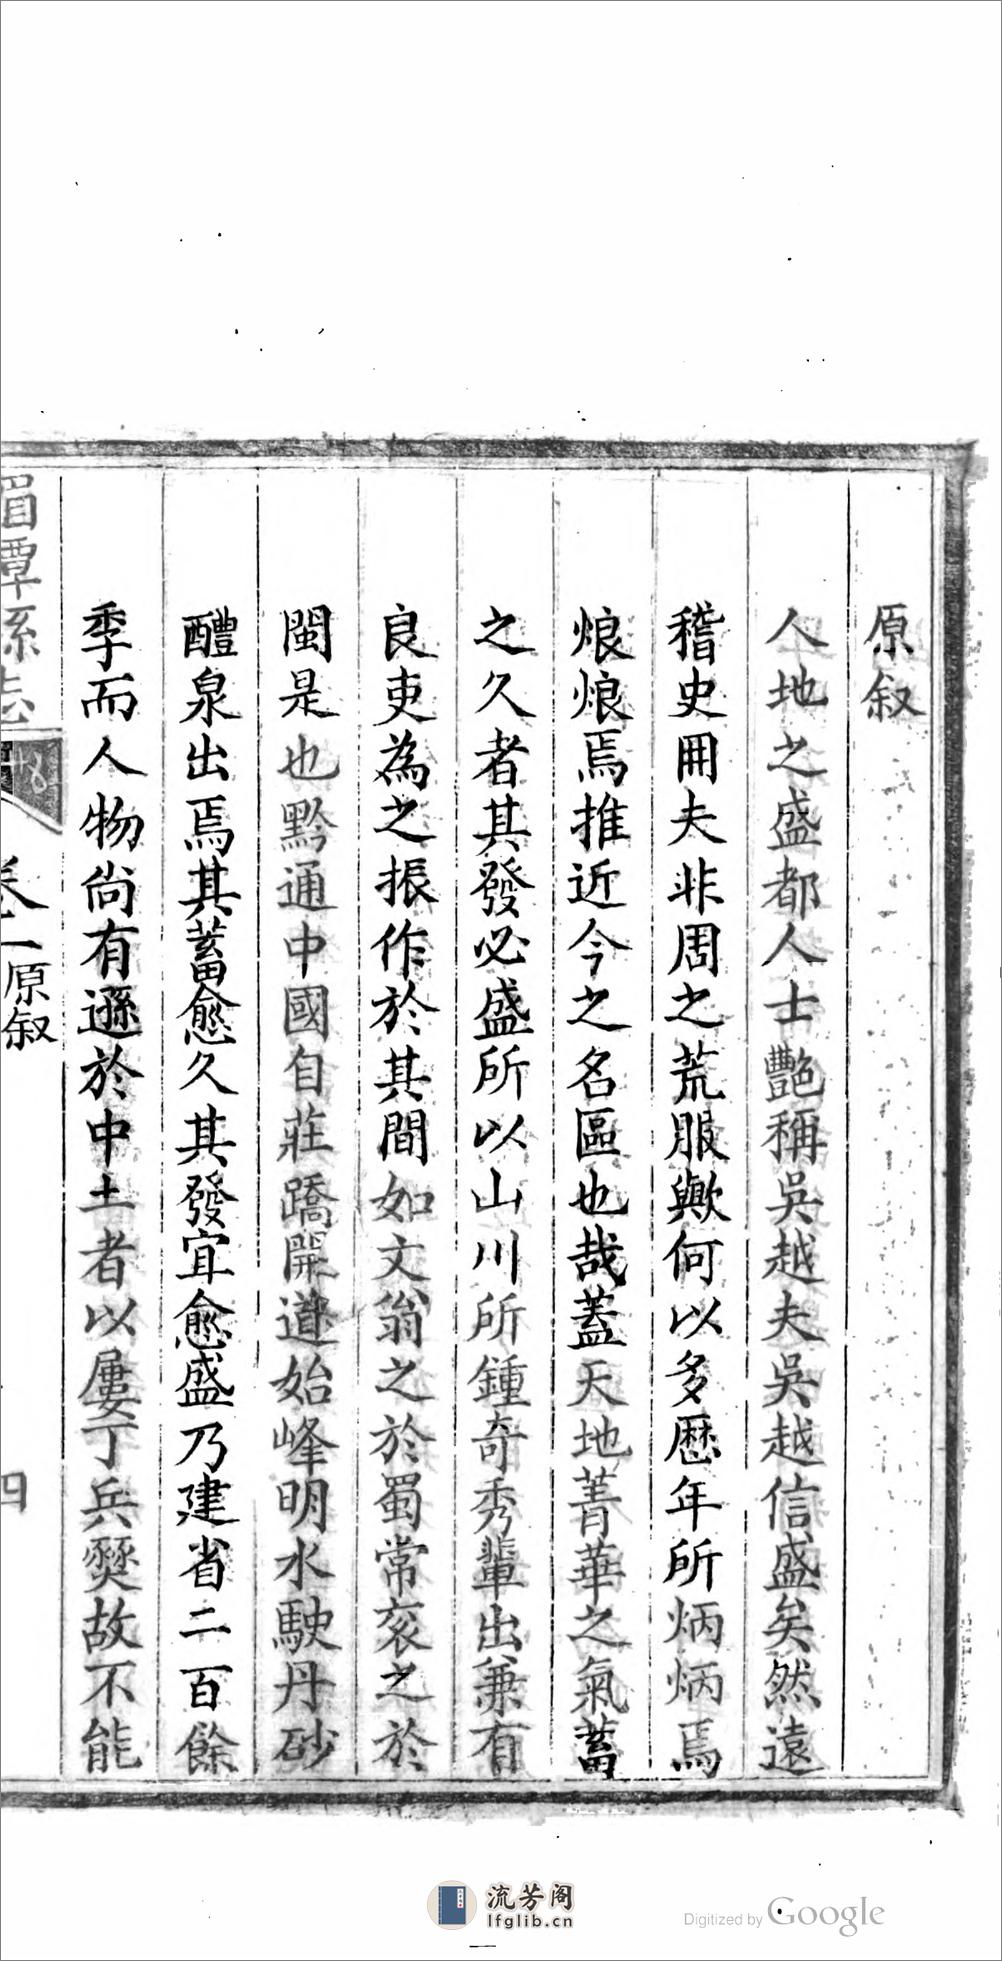 原叙
人地之盛都人士艷稱吳越夫吳越信盛矣然遠
稽史冊夫非周之荒服歟何以多歷年所炳炳焉
烺烺焉推近今之名區也哉蓋天地菁華之氣蓄
之久者其發必盛所以山川所鍾奇秀輩出兼有
良吏為之振作於其間如文翁之於蜀常袞之於
閩是也黔通中國自莊蹻開道始峰明水駛丹砂
醴泉出焉其蓄愈久其發宜愈盛乃建省二百餘
季而人物尙有遜於中土者以屢丁兵燹故不能
湄潭縣志
卷二原叙
四
流芳阁
lfglib.cn
Digitized by Google